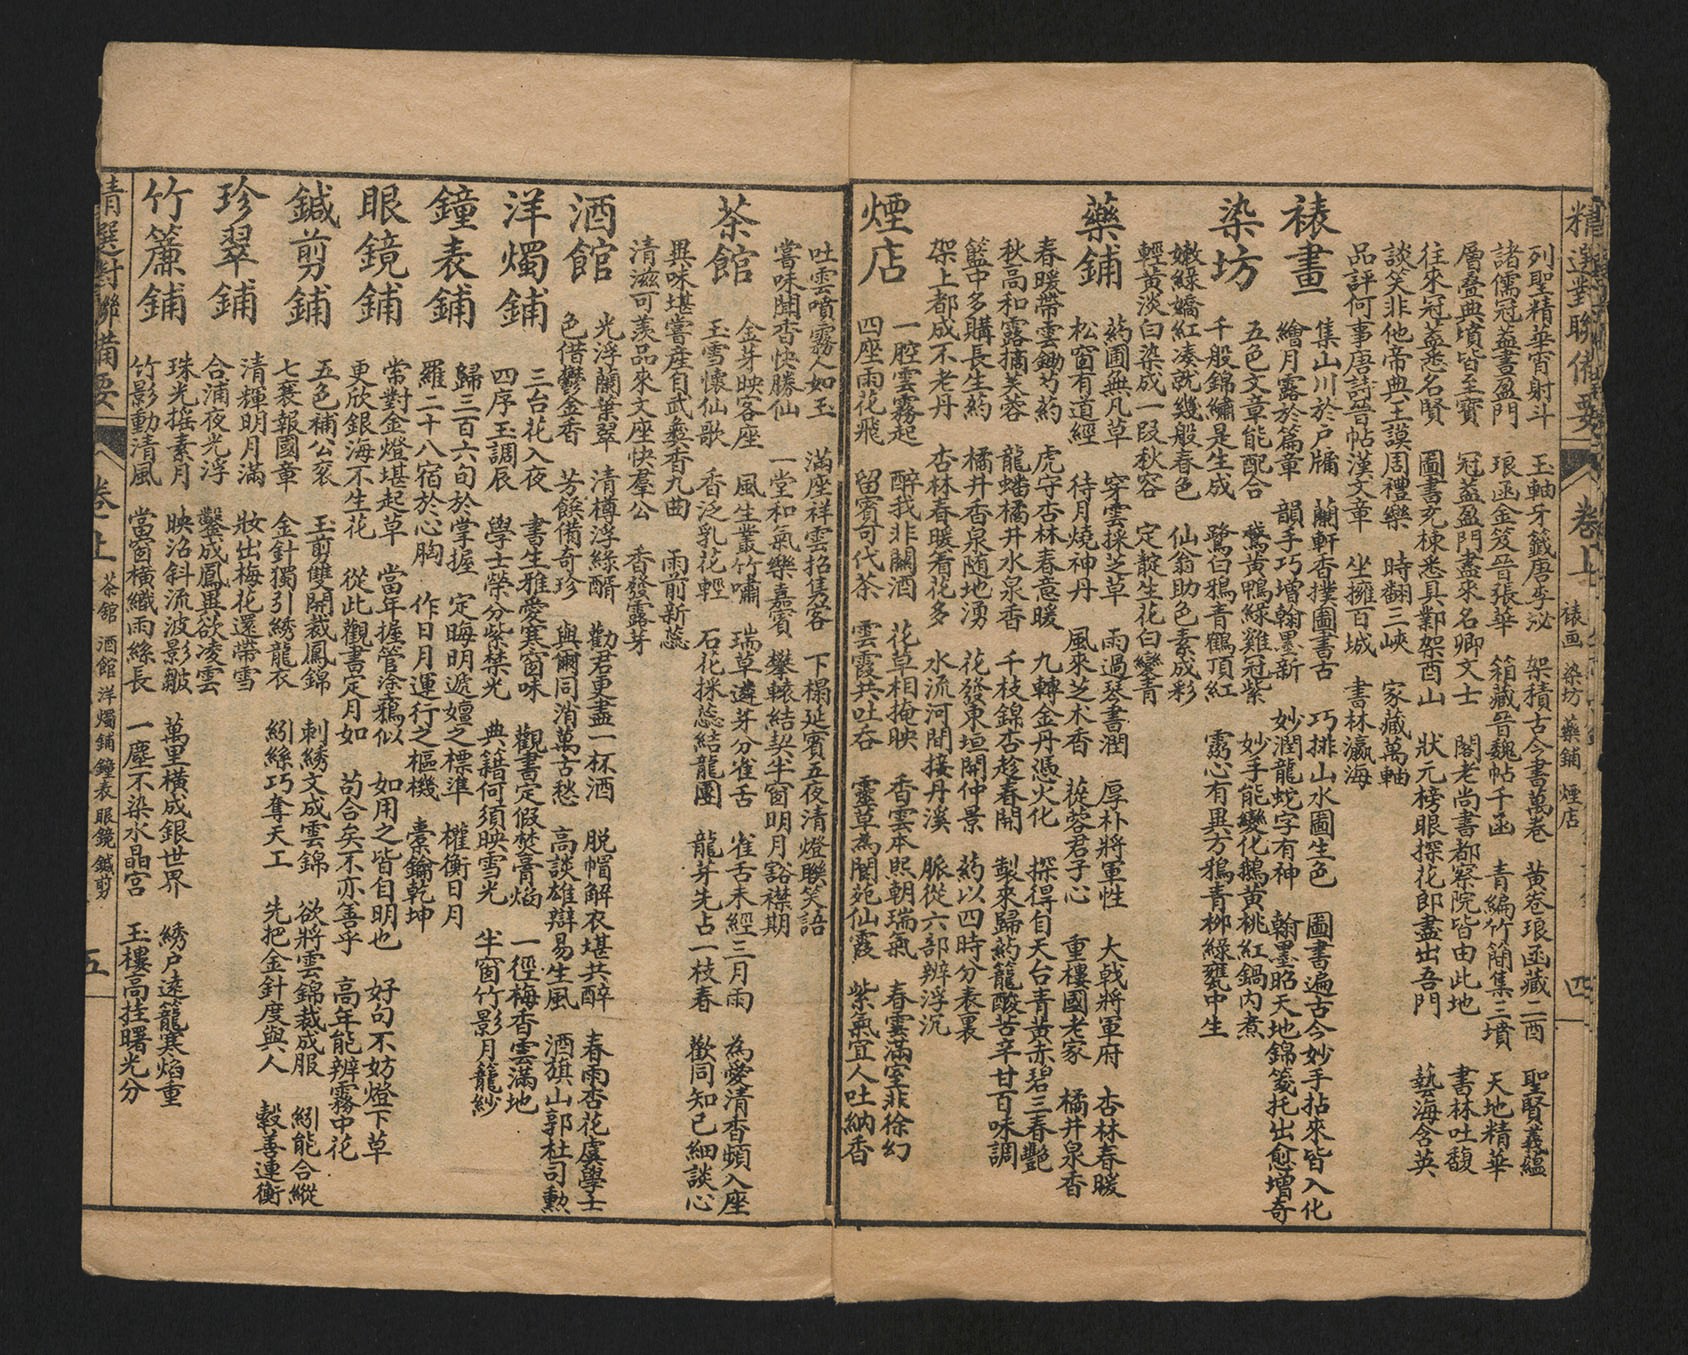 精選對聯備要 卷上 裱画 染坊 藥鋪 煙店 四
列聖精華宵射斗 玉軸牙籤唐李泌 架積古今書萬卷 黃卷琅函藏二酉 聖賢義蘊
諸儒冠蓋晝盈門 琅函金笈晉張華 箱藏晉魏帖千函 青編竹簡集三墳 天地精華
層疊典墳皆至寶 冠蓋盈門盡來名卿文士 閣老尚書都察院皆由此地 書林吐馥
往來冠蓋悉名賢 圖書充棟悉具鄴架酉山 狀元榜眼探花郎盡出吾門 藝海含英
談笑非他帝典王謨周禮樂 時翻三峽 家藏萬軸
品評何事唐詩晉帖漢文章 坐擁百城 書林瀛海
裱畫
集山川於戶牖 蘭軒香撲圖書古 巧排山水圖生色 圖書遍古今妙手拈來皆入化
繪月露於篇章 韻手巧增翰墨新 妙潤龍蛇字有神 翰墨昭天地錦箋托出愈增奇
染坊
五色文章能配合 鵞黃鴨綠雞冠紫 妙手能變化鵝黃桃紅鍋內煮
千般錦繡是生成 鷺白鴉青鶴頂紅 靈心有異方鴉青柳綠甕中生
嫩綠嬌紅湊就幾般春色 仙翁助色素成彩
輕黃淡白染成一段秋容 定靛生花白變青
藥鋪
葯圃無凡草 穿雲採芝草 雨過琴書潤 厚朴將軍性 大戟將軍府 杏林春暖
松窗有道經 待月燒神丹 風來芝术香 蓯蓉君子心 重樓國老家 橘井泉香
春暖帶雲鋤芍葯 虎守杏林春意暖 九轉金丹憑火化 探得自天台青黃赤碧三春艷
秋高和露摘芙蓉 龍蟠橘井水泉香 千枝錦杏趁春開 製來歸葯籠酸苦辛甘百味調
籃中多購長生葯 橘井香泉隨地湧 花發東垣開仲景 葯以四時分表裏
架上都成不老丹 杏林春暖看花多 水流河間接丹溪 脈從六部辨浮沉
煙店
一腔雲霧起 醉我非關酒 花草相掩映 香雲本熙朝瑞氣 春雲滿室非徐幻
四座雨花飛 留賓可代茶 雲霞共吐吞 靈草為閬苑仙霞 紫氣宜人吐納香
吐雲噴霧人如玉 滿座祥雲招雋客 下榻延賓五夜清燈聯笑語
嘗味聞香快勝仙 一堂和氣樂嘉賓 攀轅結契半窗明月谿襟期
茶館
金芽映客座 風生叢竹嘯 瑞草遴芽分雀舌 雀舌未經三月雨 為愛清香頻入座
玉雪懷仙歌 香泛乳花輕 石花採蕊結龍團 龍芽先占一枝春 歡同知己細談心
異味堪嘗產自武彝香九曲 雨前新蕊
清滋可羨品來文座快羣公 香發露芽
酒館
光浮蘭葉翠 清樽浮綠醑 勸君更盡一杯酒 脫帽解衣堪共醉 春雨杏花虞學士
色借鬱金香 芳饌備奇珍 與爾同消萬古愁 高談雄辯易生風 酒旗山郭杜司勳
洋燭鋪
三台花入夜 書生雅愛寒窗味 觀書定假焚膏焰 一徑梅香雲滿地
四序玉調辰 學士榮分紫禁光 典籍何須映雪光 半窗竹影月籠紗
鐘表鋪
歸三百六旬於掌握 定晦明遞嬗之標準 權衡日月
羅二十八宿於心胸 作日月運行之樞機 橐籥乾坤
眼鏡鋪
常對金燈堪起草 當年握管塗鴉似 如用之皆自明也 好句不妨燈下草
更欣銀海不生花 從此觀書定月如 苟合矣不亦善乎 高年能辨霧中花
鍼剪鋪
五色補公衮 玉剪雙開裁鳳錦 刺綉文成雲錦 欲將雲錦裁成服 紉能合縱
七襄報國章 金針獨引綉龍衣 紉絲巧奪天工 先把金針度與人 縠善連衡
珍翠鋪
清輝明月滿 妝出梅花還帶雪
合浦夜光浮 鑿成鳳異欲凌雲
竹簾鋪
珠光搖素月 映沼斜流波影皺 萬里橫成銀世界 綉户遠籠寒焰重
竹影動清風 當窗橫織雨絲長 一塵不染水晶宮 玉樓高挂曙光分
精選對聯備要 卷上 茶館 酒館 洋燭鋪 鐘表 眼鏡 鍼剪 五